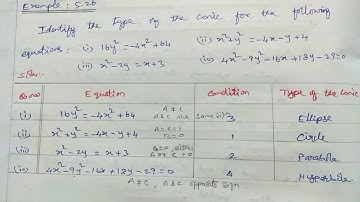 Example : 5.26
Identify the type of the conic for the following
equations : (i) 16y² = -4x² + 64 (ii) x² + y² = -4x - y + 4
(iii) x² - 2y = x + 3 (iv) 4x² - 9y² - 16x + 18y - 29 = 0
Soln:
Q.no Equation Condition Type of the Conic
(i) 16y² = -4x² + 64 A ≠ C A & C are same sign 3 Ellipse
(ii) x² + y² = -4x - y + 4 A = C = 1 B = 0 1 Circle
(iii) x² - 2y = x + 3 B = 0, either A or C = 0 2 Parabola
(iv) 4x² - 9y² - 16x + 18y - 29 = 0 4 Hyperbola
A ≠ C, A & C opposite sign